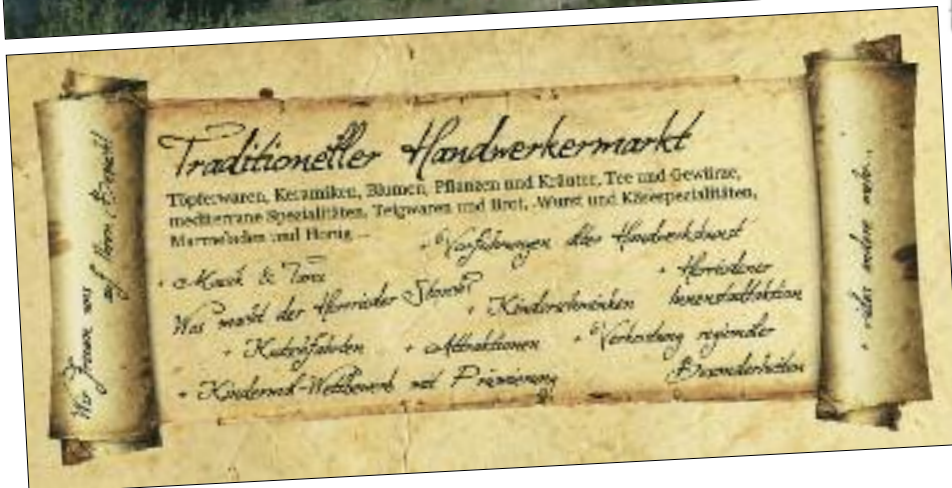 Traditioneller Handwerkermarkt
Töpferwaren, Keramiken, Blumen, Pflanzen und Kräuter, Tee und Gewürze,
mediterrane Spezialitäten, Teigwaren und Brot, Wurst und Käsespezialitäten,
Marmeladen und Honig ...
+ Vorführungen alter Handwerkskunst
+ Musik & Tanz
Was macht der Herrieder Storch?
+ Kinderschminken
+ Herriedener
Innenstadtfaktion
+ Kutschfahrten
+ Attraktionen
+ Verkostung regionaler
Besonderheiten
+ Kindermal-Wettbewerb mit Prämierung
Wir freuen uns
auf Ihren Besuch!
+ vieles andere mehr...